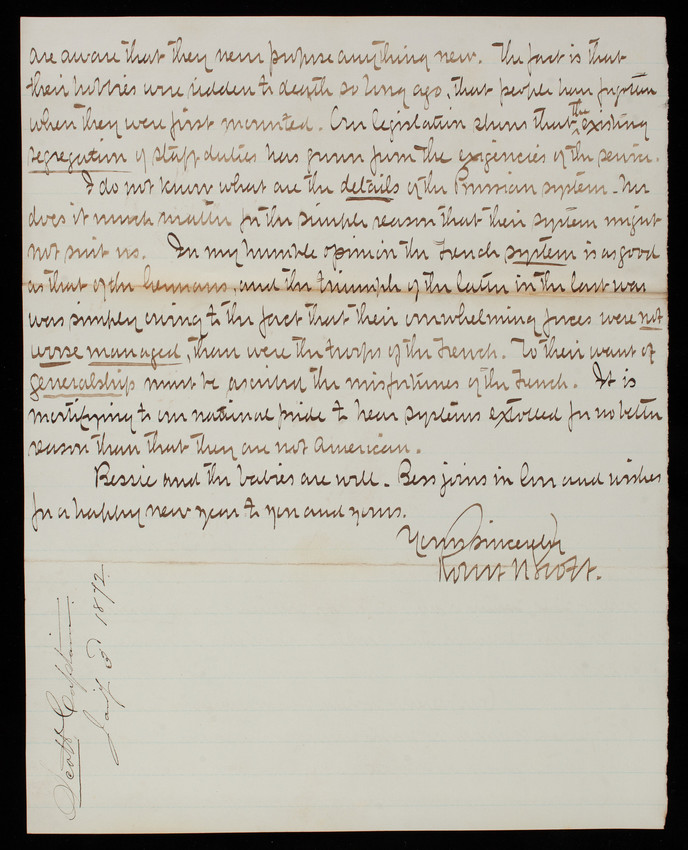 are aware that they never propose anything new. The fact is that
their hobbies were ridden to death so long ago, that people have forgotten
when they were first mounted. Our legislation shows that the existing
segregation of staff duties has grown from the exigencies of the service.
I do not know what are the details of the Prussian system - Nor
does it much matter for the simple reason that their system might
not suit us. In my humble opinion the French system is as good
as that of the Germans, and the triumph of the latter in the last war
was simply owing to the fact that their overwhelming forces were not
worse managed, than were the troops of the French. To their want of
generalship must be ascribed the misfortunes of the French. It is
mortifying to our national pride to hear systems extolled for no better
reason than that they are not American.
Bessie and the babies are well. Bess joins in love and wishes
for a happy new year to you and yours.
Yours sincerely
Robert N Scott.
Scott Captain.
Jany 3d 1872